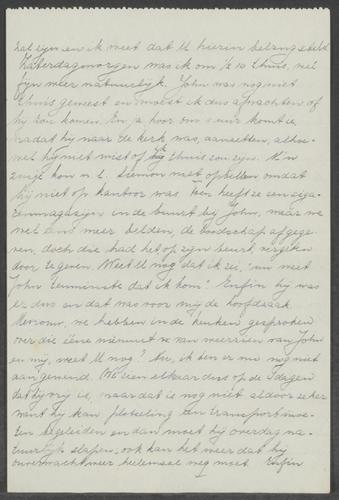 zal zijn en ik weet dat U hierin belang stelt
Zaterdagmorgen was ik om ½ 10 thuis, wel
fijn weer natuurlijk. John was nog niet
thuis geweest en moest ik dus afwachten of
hij zou komen. En ja hoor om 5 uur komt ie
nadat hij naar de kerk was, aanzetten, alhoe-
wel hij niet wist of ik thuis zou zijn. M'n
zusje kon n.l. niet opbellen omdat
hij niet op kantoor was toen heeft ze een siga-
renmagazijn in de buurt bij John, waar we
wel eens meer belden, de boodschap afgege-
ven, doch die had het op zijn beurt vergeten
door te geven. Weet U nog dat ik zei, nu weet
John tenminste dat ik kom! Enfin hij was
er dus en dat was voor mij de hoofdzaak.
Mevrouw, we hebben in de keuken gesproken
over die ééne van John
en mij, weet U nog? Nu, ik ben er nu nog niet
aan gewend. We zien elkaar dus op de dagen
dat hij vrij is, maar dat is nog niet altoos zeker
want hij kan plotseling een transport moe-
ten begeleiden en dan moet hij overdag na-
tuurlijk slapen, ook kan het weer dat hij
onverwacht weer helemaal weg moet. Enfin